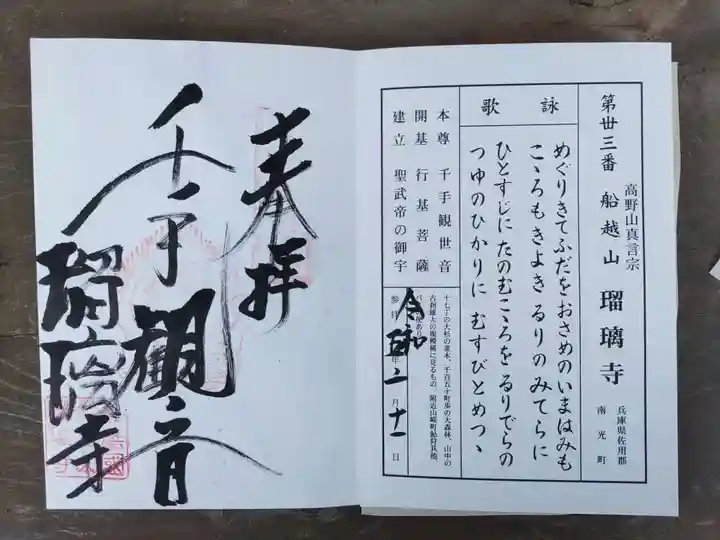 第丗三番 船越山 瑠璃寺
高野山真言宗
兵庫県佐用郡
南光町
詠歌
めぐりきてふだをおさめのいまはみも
こゝろもきよきるりのみてらに
ひとすじにたのむこゝろをるりでらの
つゆのひかりに むすびとめつゝ
本尊 千手観世音
開基 行基菩薩
建立 聖武帝の御宇
十七丁の大杉の並木、千百五十町歩の大森林、山中の
参拝 令和五年二月十一日
奉拝
千手観音
瑠璃寺